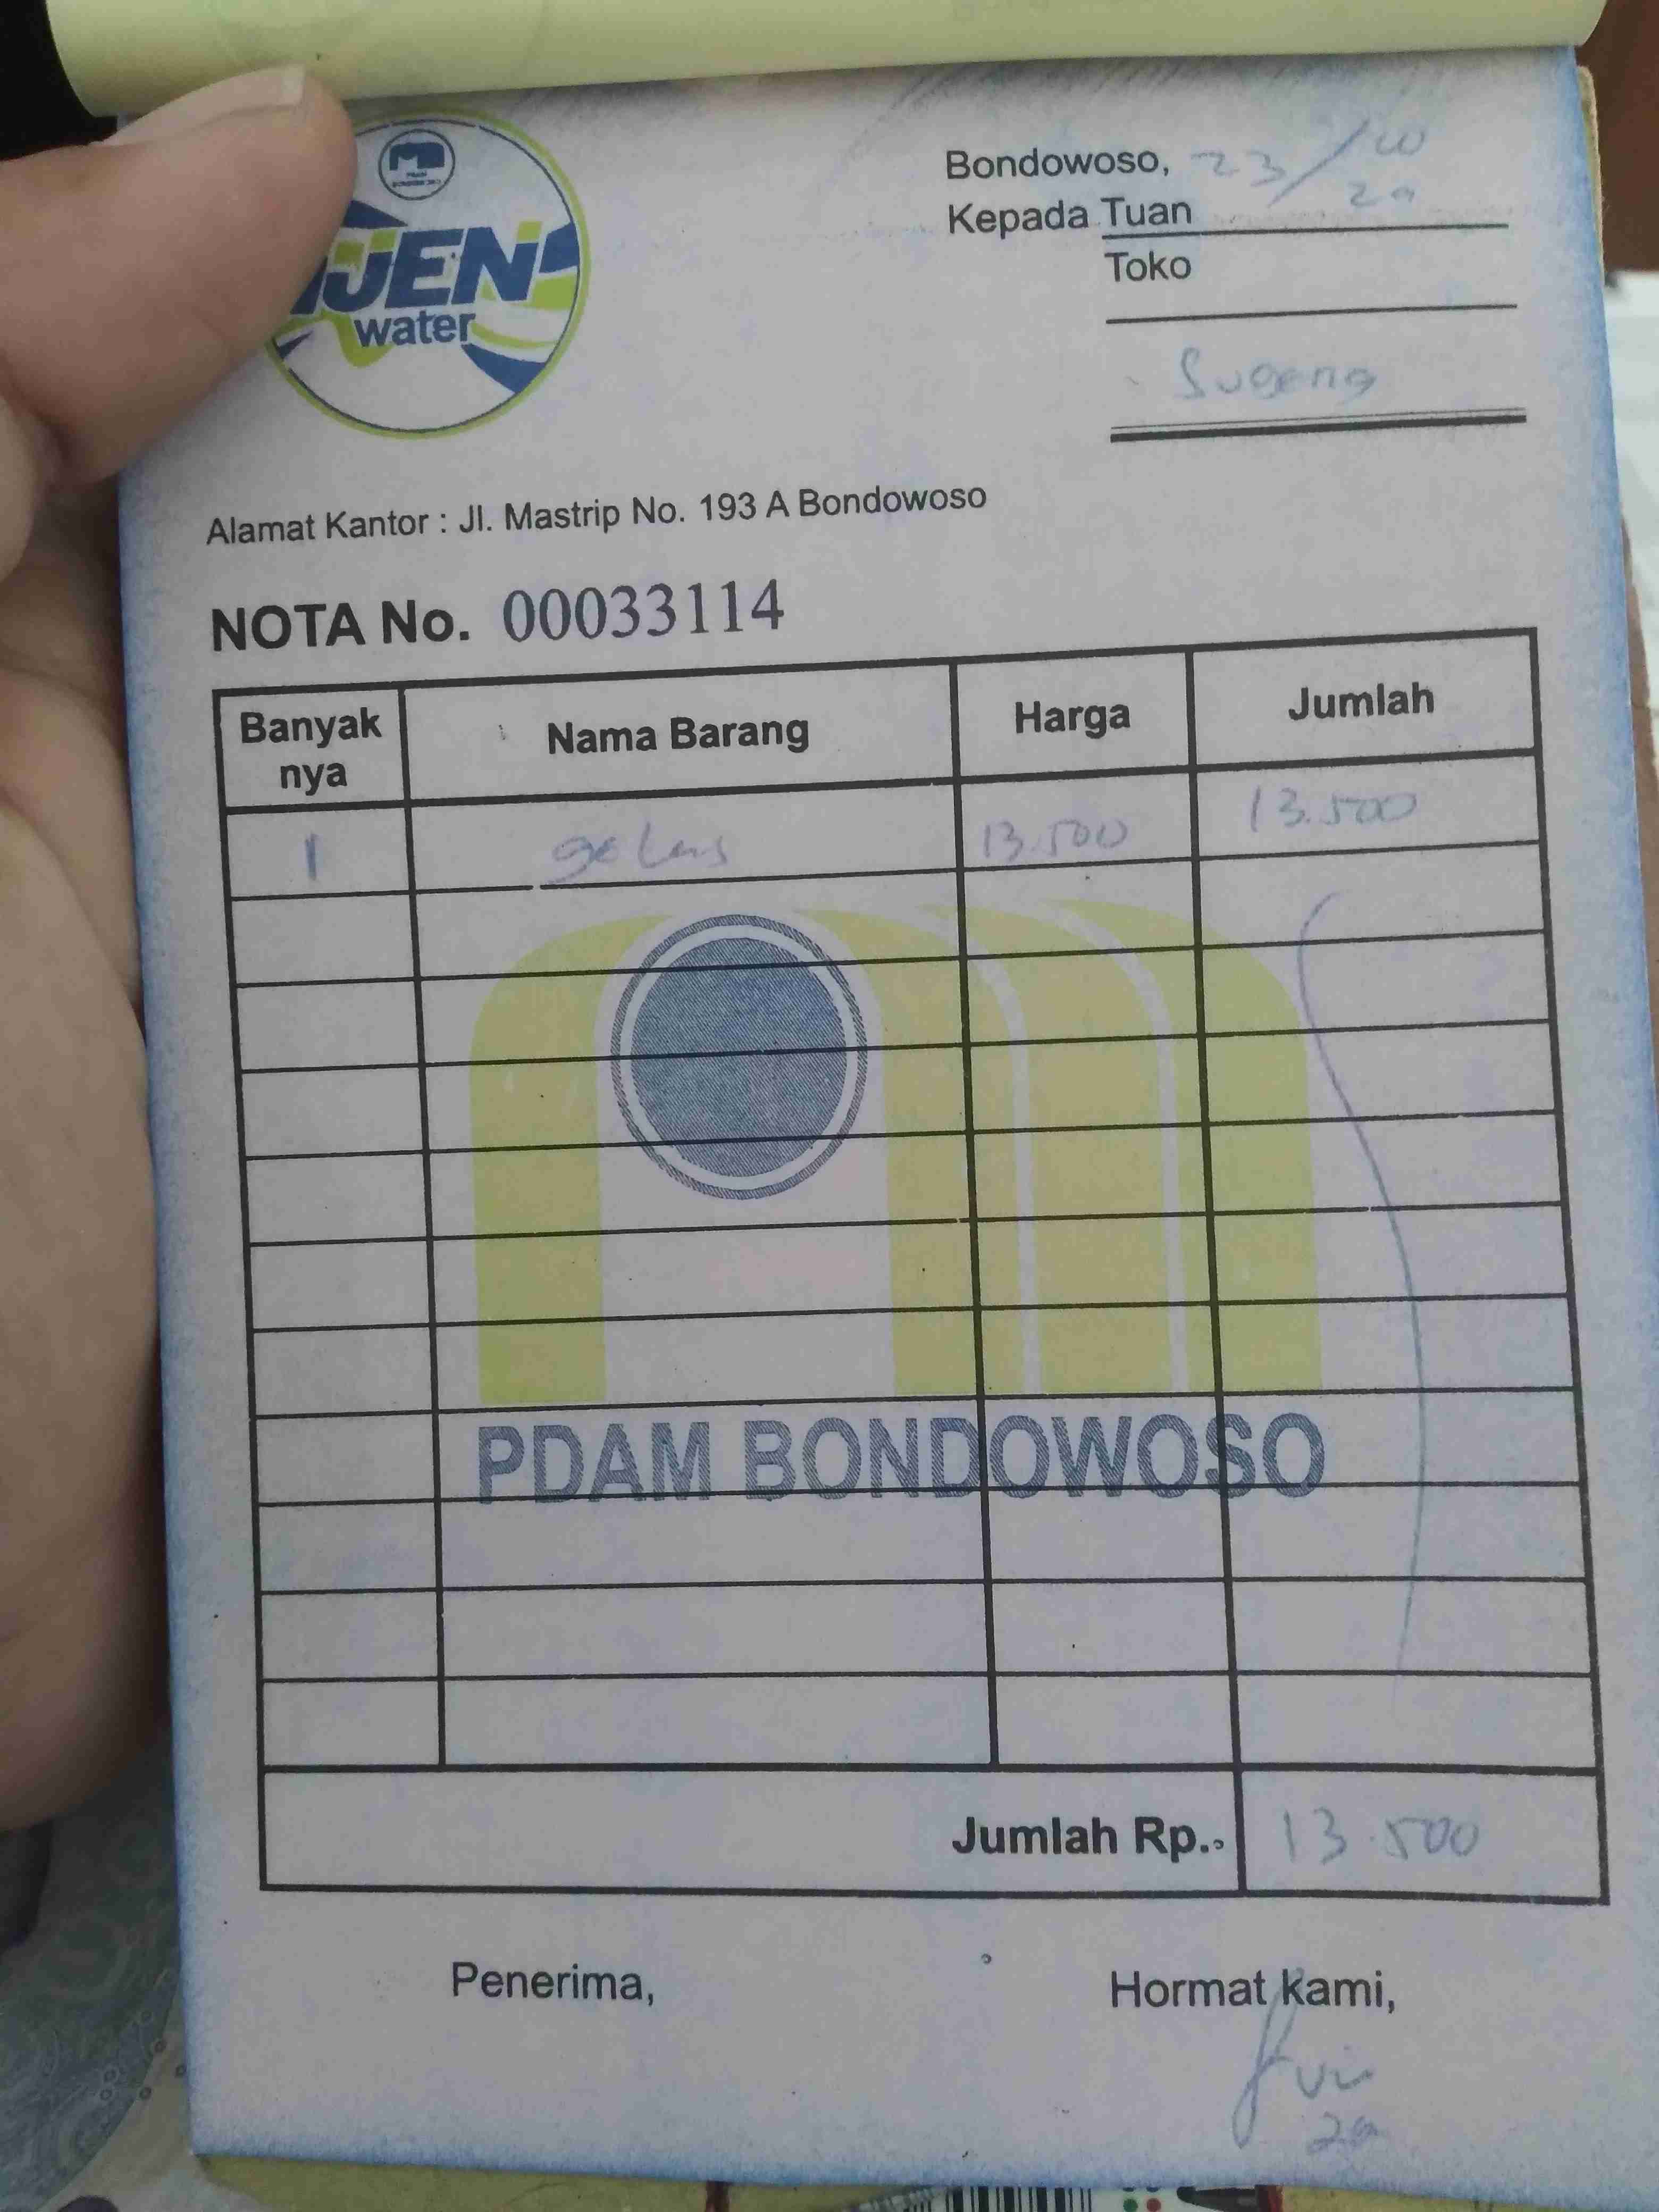 IJEN
water
Bondowoso, 23/10
20
Kepada Tuan
Toko
Sugeng
Alamat Kantor : Jl. Mastrip No. 193 A Bondowoso
NOTA No. 00033114
Banyak nya Nama Barang Harga Jumlah
1 gelas 13.500 13.500
PDAM BONDOWOSO
Jumlah Rp. 13.500
Penerima, Hormat kami,